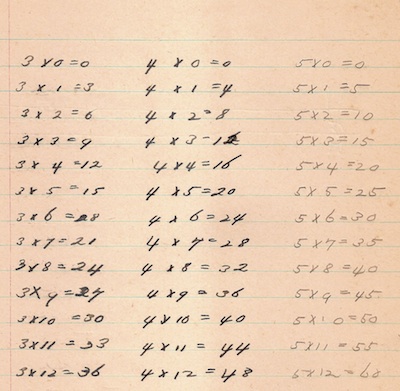 3 x 0 = 0 4 x 0 = 0 5 x 0 = 0
3 x 1 = 3 4 x 1 = 4 5 x 1 = 5
3 x 2 = 6 4 x 2 = 8 5 x 2 = 10
3 x 3 = 9 4 x 3 - 12 5 x 3 = 15
3 x 4 = 12 4 x 4 = 16 5 x 4 = 20
3 x 5 = 15 4 x 5 = 20 5 x 5 = 25
3 x 6 = 18 4 x 6 = 24 5 x 6 = 30
3 x 7 = 21 4 x 7 = 28 5 x 7 = 35
3 x 8 = 24 4 x 8 = 32 5 x 8 = 40
3 x 9 = 27 4 x 9 = 36 5 x 9 = 45
3 x 10 = 30 4 x 10 = 40 5 x 10 = 50
3 x 11 = 33 4 x 11 = 44 5 x 11 = 55
3 x 12 = 36 4 x 12 = 48 5 x 12 = 60